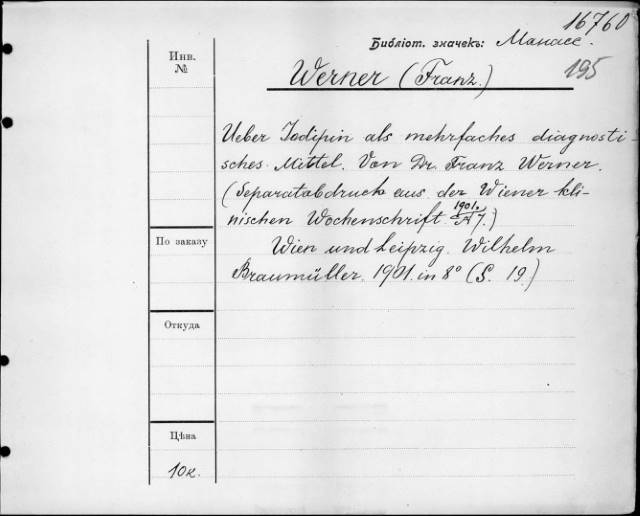 16760
Библіот. значекъ: Манасе.
195
Инв.
№
Werner (Franz.)
Ueber Jodipin als mehrfaches diagnosti-
sches Mittel. Von Dr. Franz Werner.
(Separatabdruck aus der Wiener kli-
nischen Wochenschrift 1901. № 7.)
По заказу
Wien und Leipzig. Wilhelm
Braumüller. 1901. in 8° (S. 19.)
Откуда
Цѣна
10к.